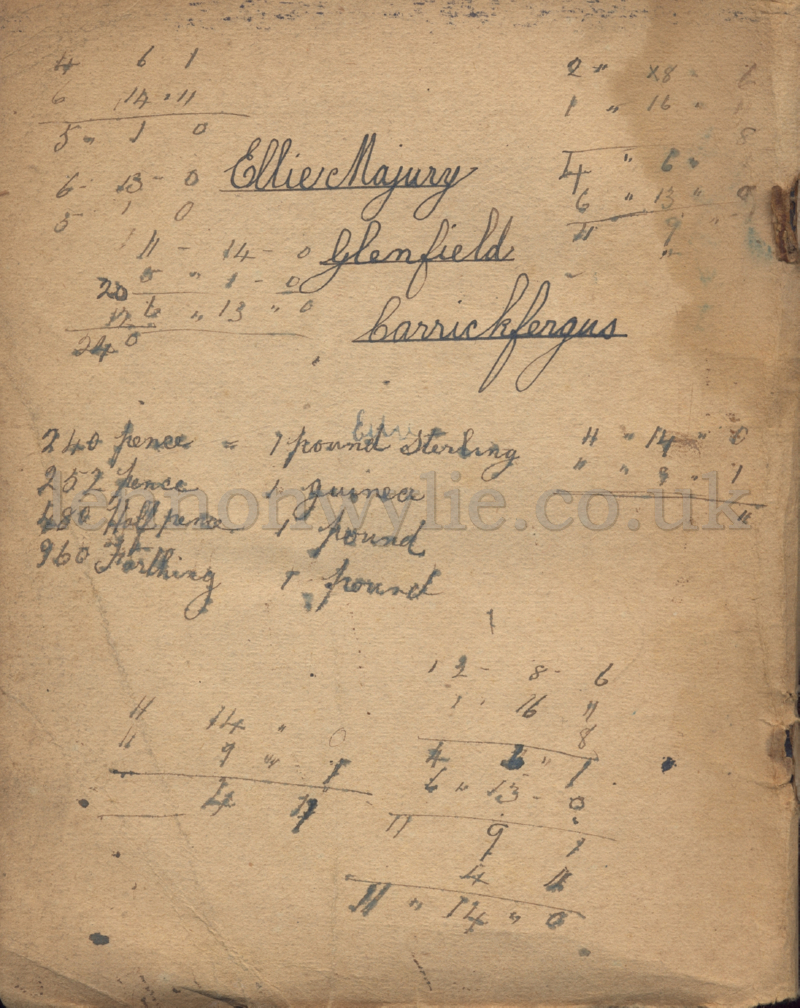 4 6 1
6 14 " 11
5 " 1 0
6 - 13 - 0
5 1 0
11 - 14 - 0
5 " 1 - 0
6 " 13 " 0
20
12
240
2 "
1 " 16 " 11
8
4 " 6 "
6 " 13 " 0
11 9 "
Ellie Majury
Glenfield
Carrickfergus
240 pence = 1 pound Sterling
252 pence 1 guinea
480 Half pence 1 pound
960 Farthing 1 pound
11 " 14 " 0
" " 9 " 1
"
lennonwylie.co.uk
1
12 - 8 - 6
1 " 16 11
8
4 6 " 1
6 " 13 - 0
11 9 1
4 11
11 " 14 " 0
11 14 " 0
11 9 " 1
4 11